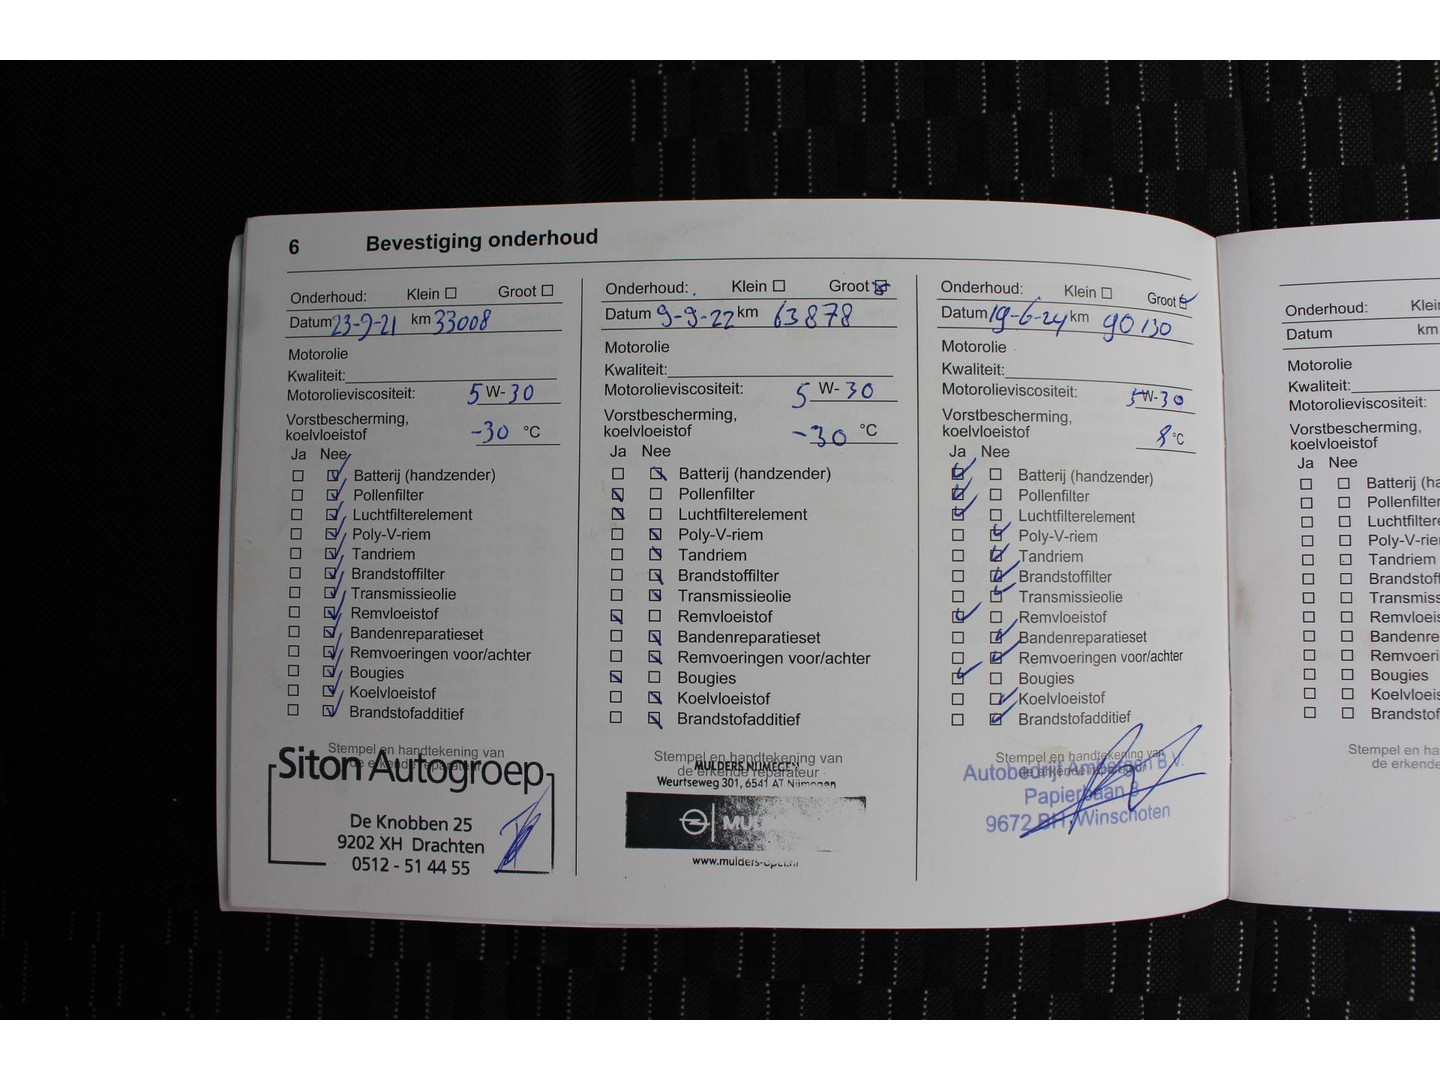 6 Bevestiging onderhoud
Onderhoud: Klein Groot
Datum 23-9-21 km 33008
Motorolie
Kwaliteit:
Motorolieviscositeit: 5 W-30
Vorstbescherming,
koelvloeistof -30 °C
Ja Nee
Batterij (handzender)
Pollenfilter
Luchtfilterelement
Poly-V-riem
Tandriem
Brandstoffilter
Transmissieolie
Remvloeistof
Bandenreparatieset
Remvoeringen voor/achter
Bougies
Koelvloeistof
Brandstofadditief
Stempel en handtekening van
de erkende reparateur
Siton Autogroep
De Knobben 25
9202 XH Drachten
0512 - 51 44 55
Onderhoud: Klein Groot
Datum 9-9-22 km 63878
Motorolie
Kwaliteit:
Motorolieviscositeit: 5 W-30
Vorstbescherming,
koelvloeistof -30 °C
Ja Nee
Batterij (handzender)
Pollenfilter
Luchtfilterelement
Poly-V-riem
Tandriem
Brandstoffilter
Transmissieolie
Remvloeistof
Bandenreparatieset
Remvoeringen voor/achter
Bougies
Koelvloeistof
Brandstofadditief
Stempel en handtekening van
de erkende reparateur
MULDERS NIJMEGEN
Weurtseweg 301, 6541 AT Nijmegen
MUL
www.mulders-opel.nl
Onderhoud: Klein Groot
Datum 19-6-24 km 90130
Motorolie
Kwaliteit:
Motorolieviscositeit: 5W-30
Vorstbescherming,
koelvloeistof 8 °C
Ja Nee
Batterij (handzender)
Pollenfilter
Luchtfilterelement
Poly-V-riem
Tandriem
Brandstoffilter
Transmissieolie
Remvloeistof
Bandenreparatieset
Remvoeringen voor/achter
Bougies
Koelvloeistof
Brandstofadditief
Stempel en handtekening van
Autobedrijf B.V.
Papierbaan 8
9672 BH Winschoten
Onderhoud: Klei
Datum km
Motorolie
Kwaliteit:
Motorolieviscositeit:
Vorstbescherming,
koelvloeistof
Ja Nee
Batterij (ha
Pollenfilter
Luchtfiltere
Poly-V-rie
Tandriem
Brandstoff
Transmiss
Remvloeis
Bandenre
Remvoeri
Bougies
Koelvloeis
Brandstof
Stempel en ha
de erkende